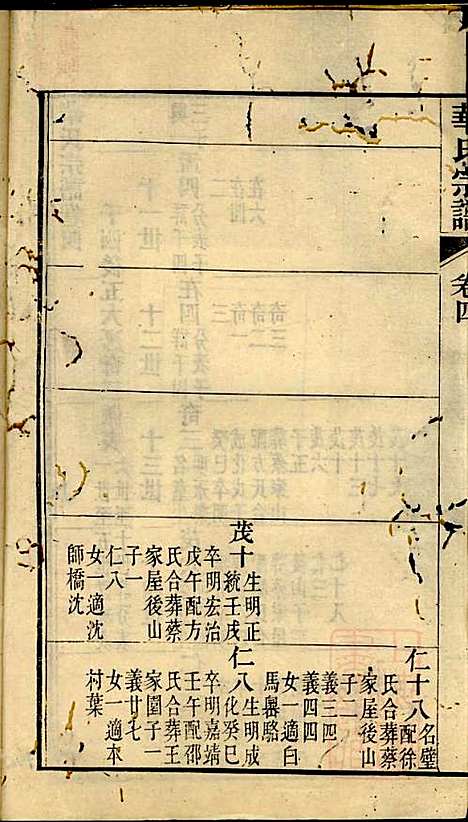 華氏宗譜
卷四
仁十八名璧
配徐
氏合葬蔡
家屋後山
子二
義三四
義四四
女一適白
馬嶴駱
茂十生明正
統壬戌
卒明宏治
戊午配方
氏合葬蔡
家屋後山
子一
仁八
女一適沈
師橋沈
仁八生明成
化癸巳
卒明嘉靖
壬午配邵
氏合葬王
家園子一
義廿七
女一適本
村葉